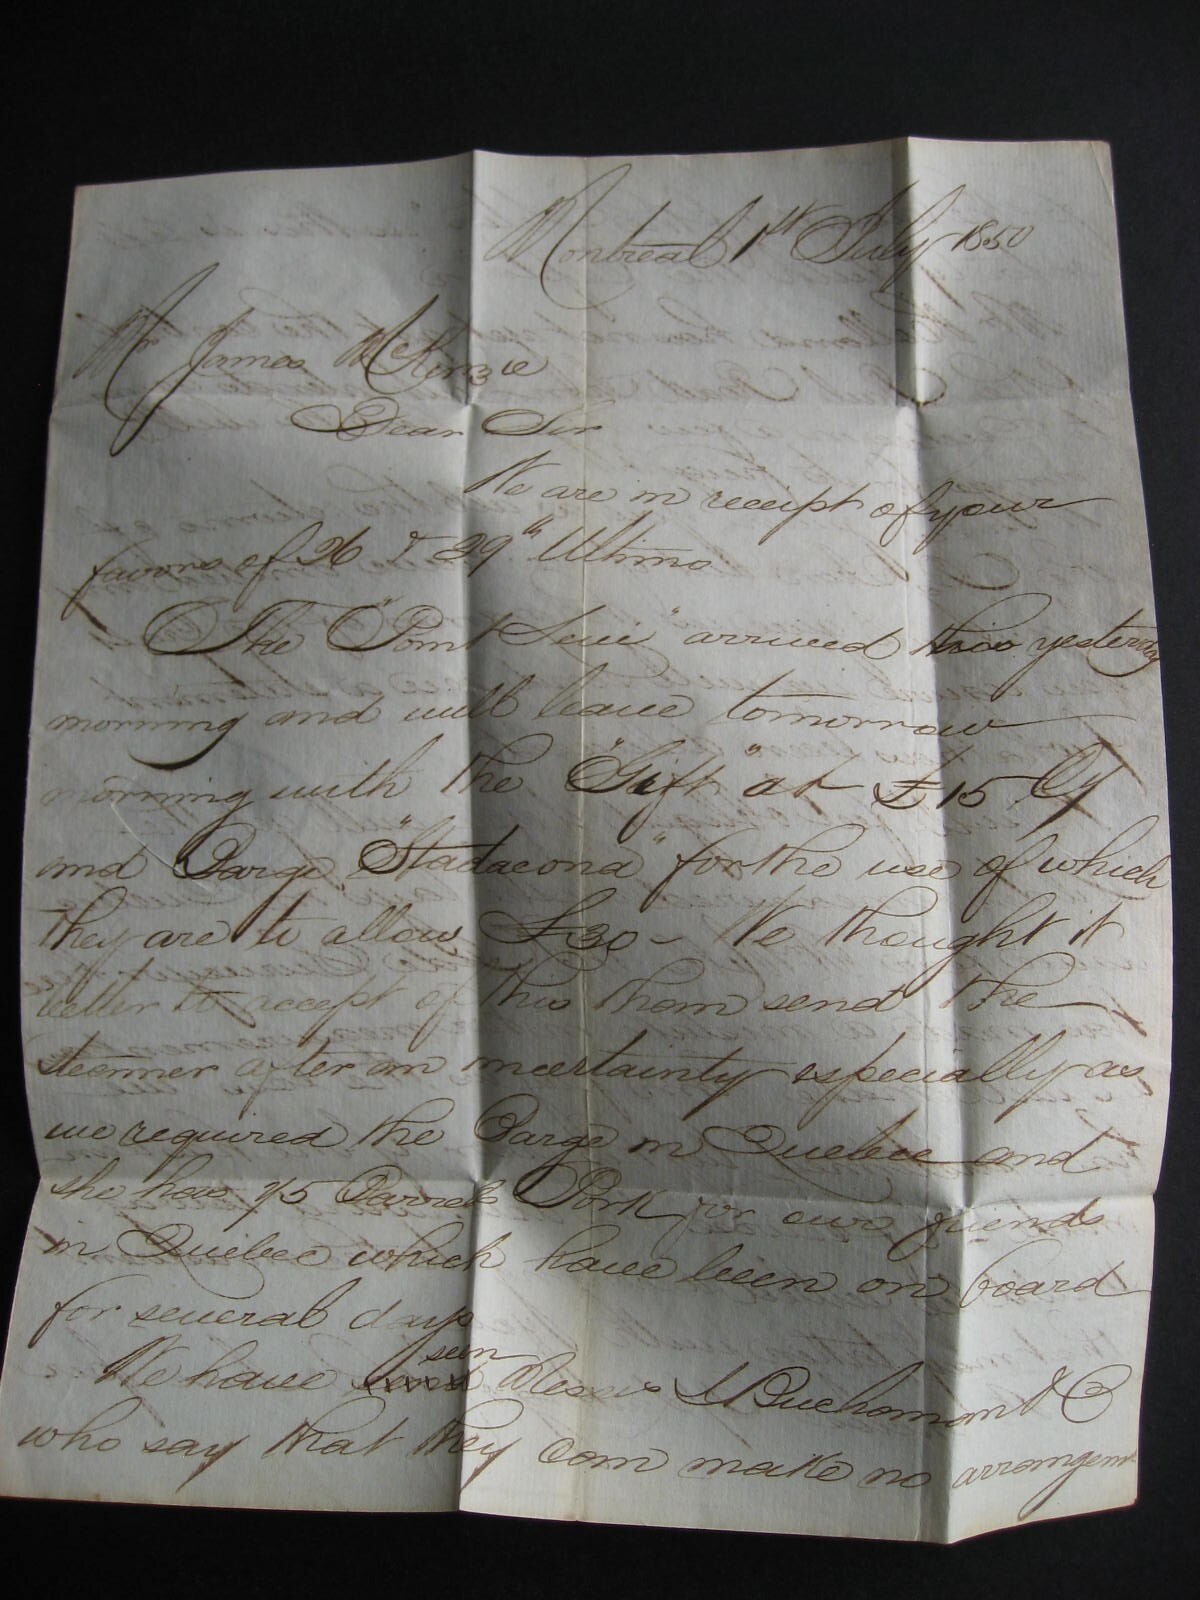 Montreal 1st July 1850
Mr James McKenzie
Dear Sir
We are in receipt of your
favors of 26 & 29th Ultimo
The "Point Levi" arrived here yesterday
morning and will leave tomorrow
morning with the "Gift" at £15 Cy
and Barge "Stadacona" for the use of which
they are to allow £30 - We thought it
better to accept of this than send the
steamer after an uncertainty especially as
we required the Barge in Quebec and
she has 75 Barrels Pork for our friends
in Quebec which have been on board
for several days
We have seen Messrs Buchanan & Co
who say that they can make no arrangemt